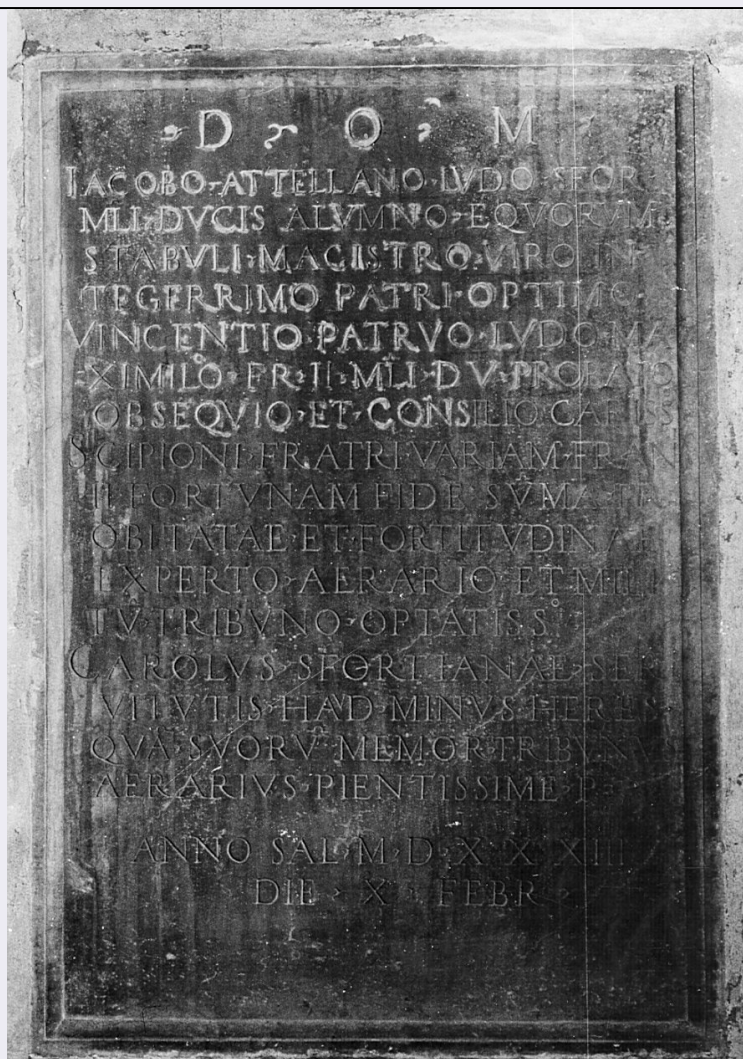 D · O · M
IACOBO · ATTELLANO · LVDO · SFOR
MLI · DVCIS ALVMNO · EQVORVM
STABVLI · MAGISTRO · VIRO IN
TEGERRIMO PATRI · OPTIMO
VINCENTIO PATRVO · LVDO · MA
XIMILO · FR · II · MLI · DV · PROBATO
OBSEQVIO · ET · CONSILIO
SCIPIONI · FRATRI VARIAM · FRAN
II FORTVNAM FIDE SVMA
OBITATAE ET · FORTITVDINA
EXPERTO · AERARIO · ET · MILI
TV · TRIBVNO · OPTATISSº
CAROLVS · SFORTIANAE · SE
VITVTIS · HAVD MINVS HERES
QVA SVORV MEMOR TRIBVNVS
AERARIVS · PIENTISSIME · P
ANNO SAL · M · D · X · X · XIII
DIE · X · FEBR ·